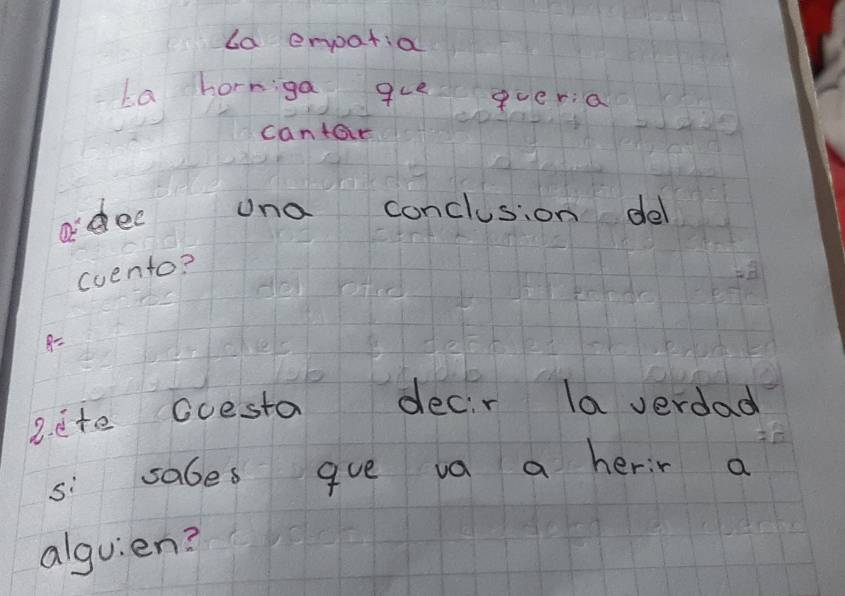 La empatia
La hormiga que queria
cantar
dee una conclusion del
cuento?
R=
2. ¿te cuesta decir la verdad
si sabes que va a herir a
alguien?